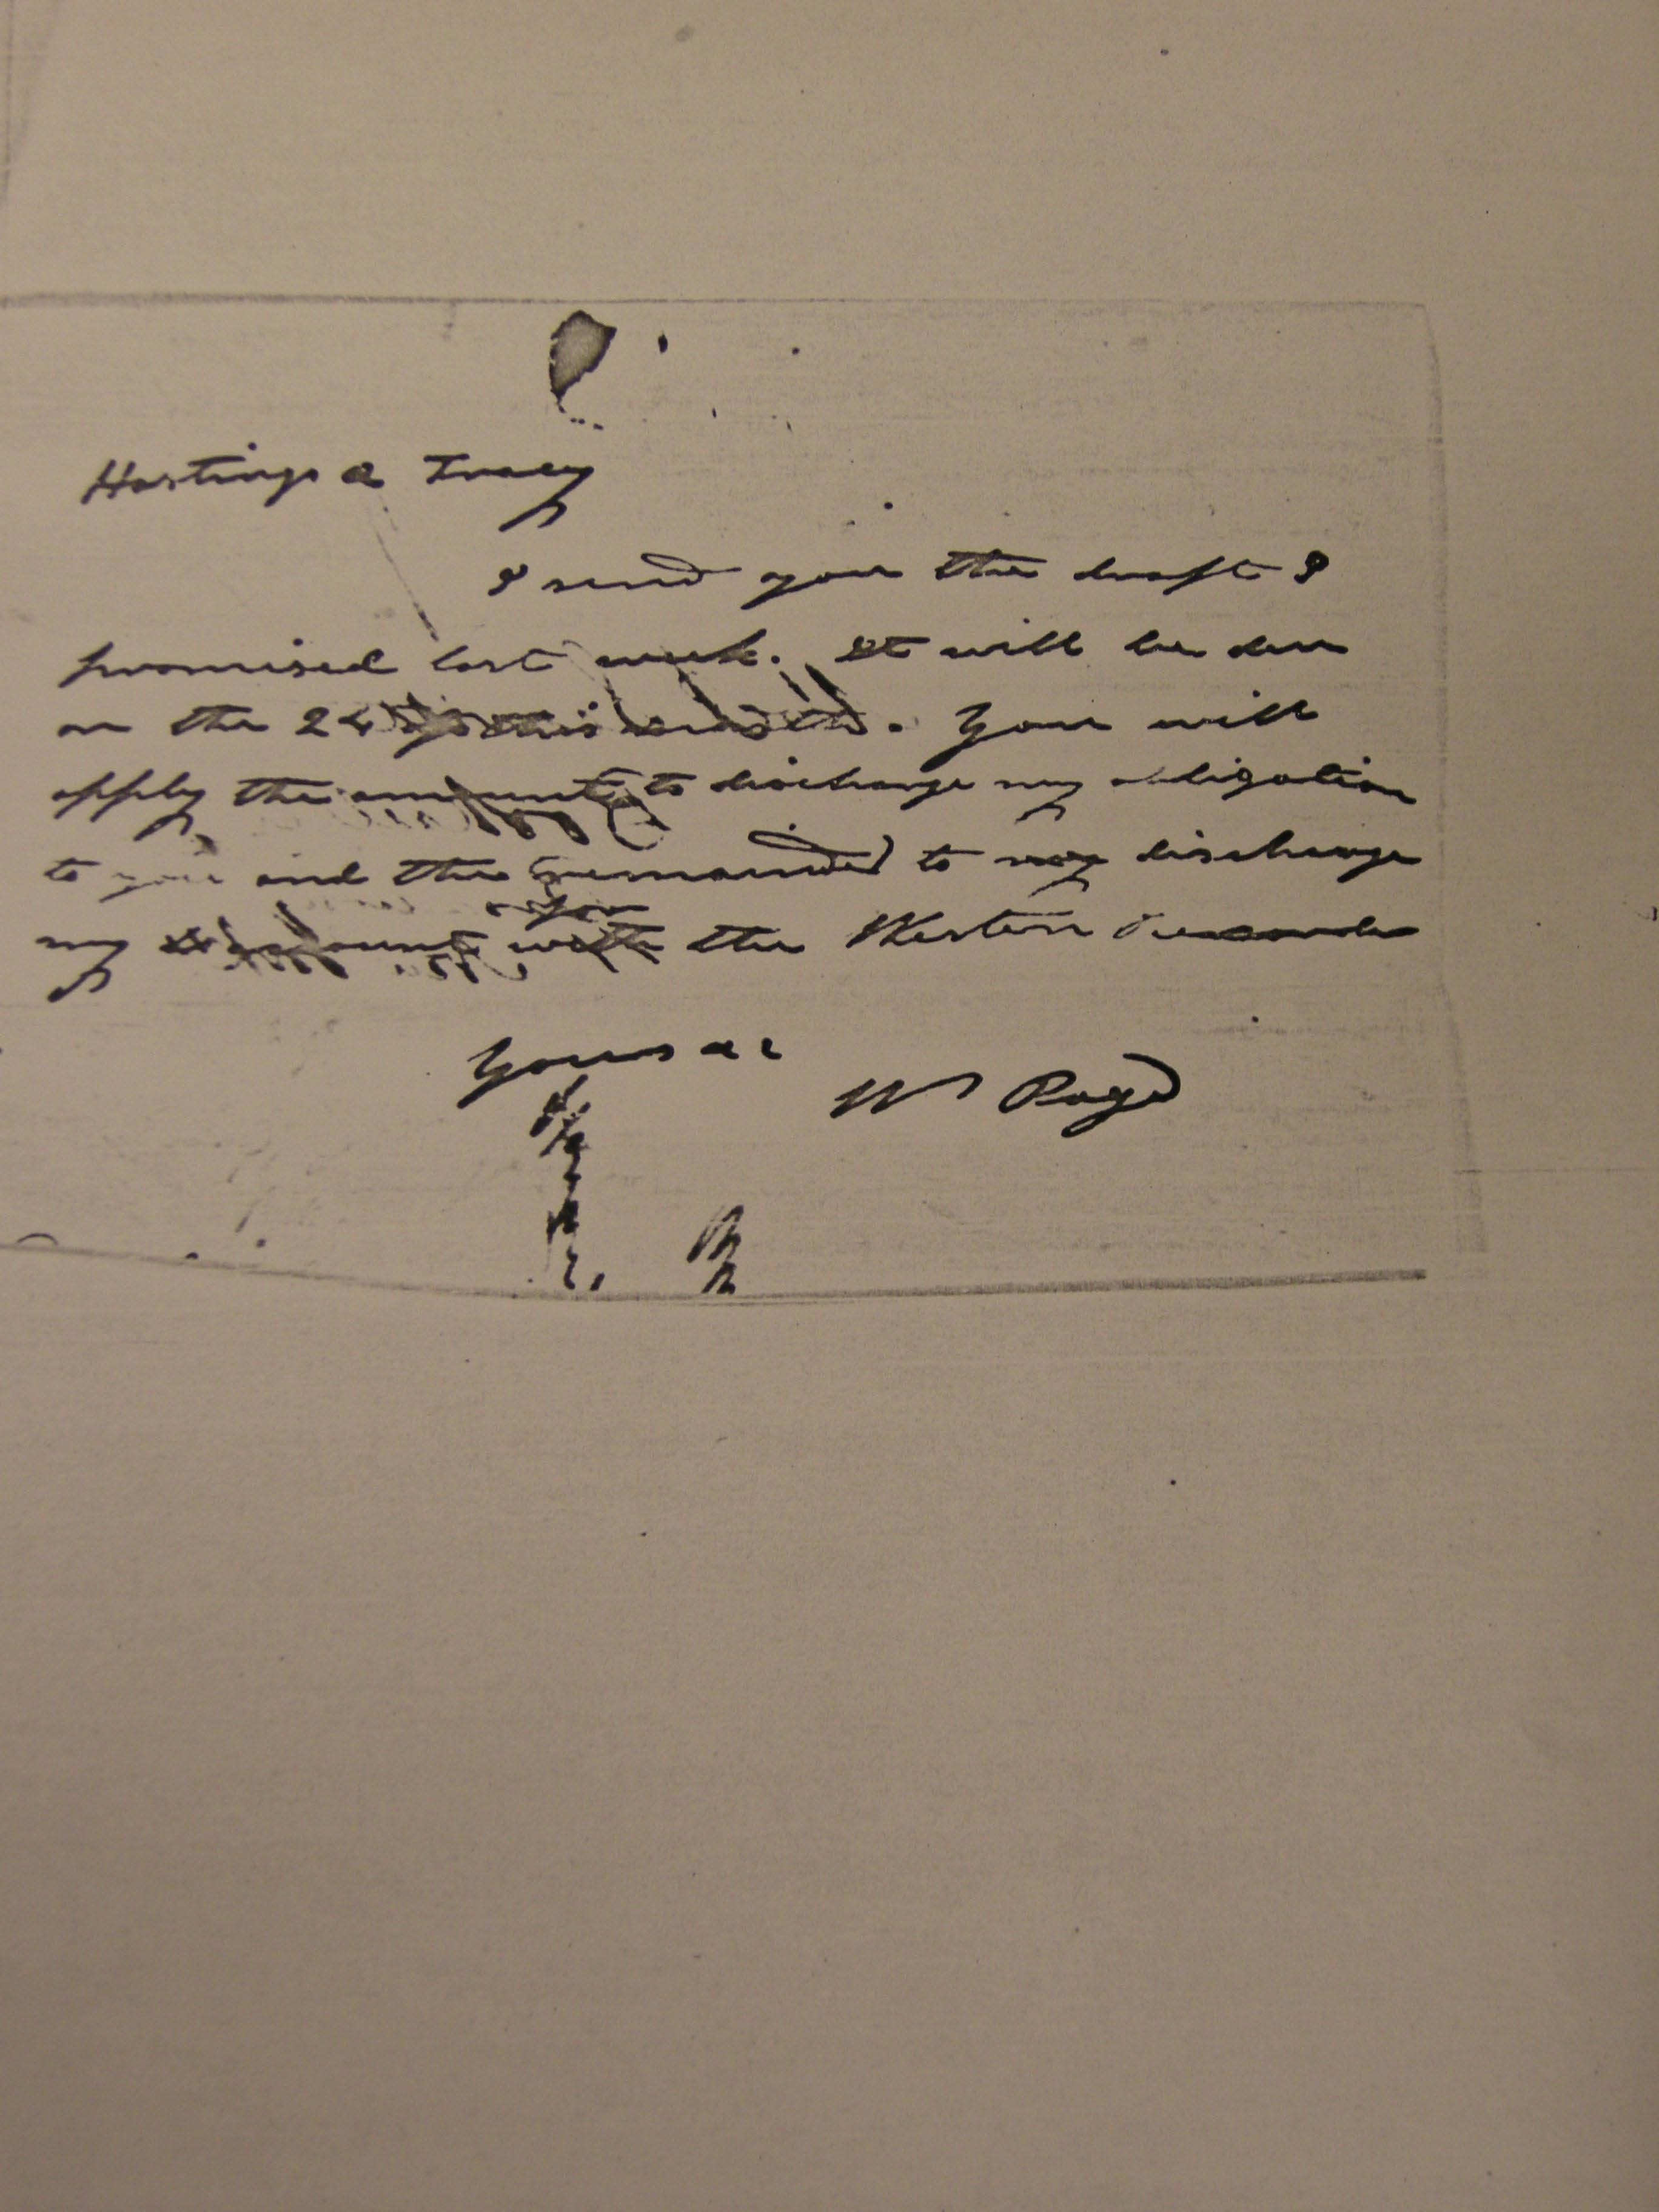 Hastings & Tracy
I send you the draft I
promised last week. It will be due
on the 24 of this month. You will
apply the amount to discharge my obligation
to you and the remainder to my discharge
my account with the Western
Yours &c
Wm Page